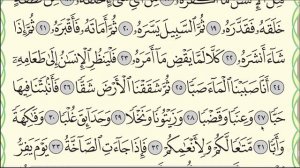 خَلَقَهُۥ فَقَدَّرَهُۥ ١٩ ثُمَّ ٱلسَّبِيلَ يَسَّرَهُۥ ٢٠ ثُمَّ أَمَاتَهُۥ فَأَقْبَرَهُۥ ٢١ ثُمَّ إِذَا
شَآءَ أَنشَرَهُۥ ٢٢ كَلَّا لَمَّا يَقْضِ مَآ أَمَرَهُۥ ٢٣ فَلْيَنظُرِ ٱلْإِنسَٰنُ إِلَىٰ طَعَامِهِۦٓ
٢٤ أَنَّا صَبَبْنَا ٱلْمَآءَ صَبًّا ٢٥ ثُمَّ شَقَقْنَا ٱلْأَرْضَ شَقًّا ٢٦ فَأَنۢبَتْنَا فِيهَا
حَبًّا ٢٧ وَعِنَبًا وَقَضْبًا ٢٨ وَزَيْتُونًا وَنَخْلًا ٢٩ وَحَدَآئِقَ غُلْبًا ٣٠ وَفَٰكِهَةً
وَأَبًّا ٣١ مَّتَٰعًا لَّكُمْ وَلِأَنْعَٰمِكُمْ ٣٢ فَإِذَا جَآءَتِ ٱلصَّآخَّةُ ٣٣ يَوْمَ يَفِرُّ